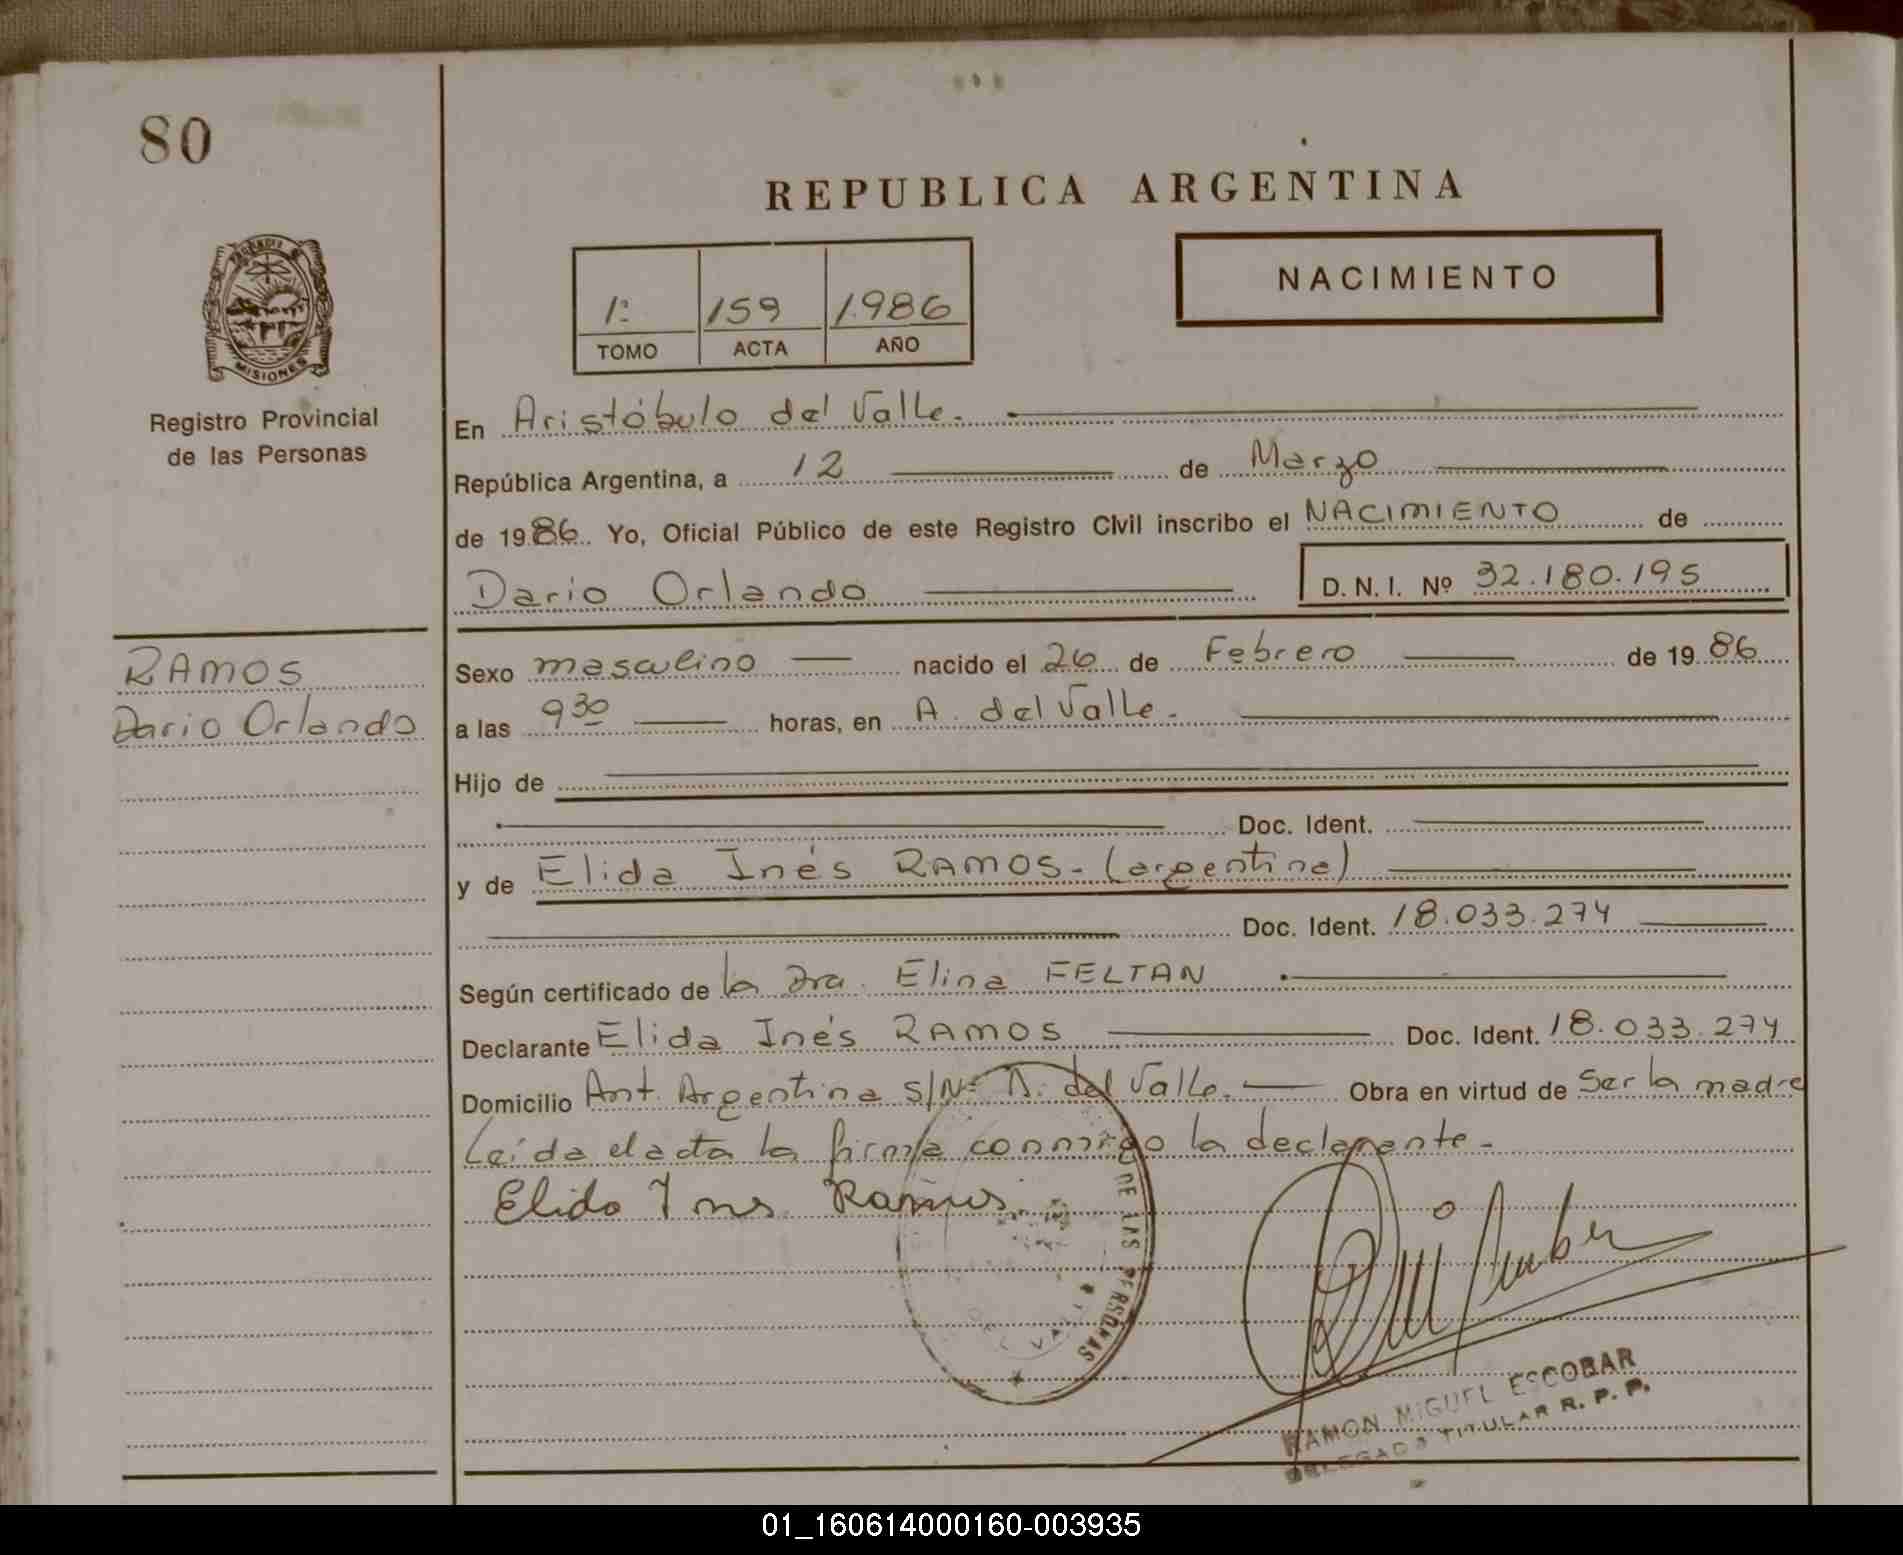 80
REPUBLICA ARGENTINA
NACIMIENTO
1º 159 1986
TOMO ACTA AÑO
MISIONES
Registro Provincial
de las Personas
En Aristóbulo del Valle.
República Argentina, a 12 de Marzo
de 1986. Yo, Oficial Público de este Registro Civil inscribo el NACIMIENTO de
Dario Orlando D. N. I. Nº 32.180.195
RAMOS
Dario Orlando
Sexo masculino nacido el 26 de Febrero de 1986
a las 9 30 horas, en A. del Valle.
Hijo de
Doc. Ident.
y de Elida Inés RAMOS - (argentina)
Doc. Ident. 18.033.274
Según certificado de la Dra. Elina FELTAN
Declarante Elida Inés RAMOS Doc. Ident. 18.033.274
Domicilio Ant. Argentina S/Nº A. del Valle. Obra en virtud de Ser la madre
Leída el acta la firma conmigo la declarante.
Elida Ines Ramos
DE LAS PERSONAS
DEL VALLE
RAMON MIGUEL ESCOBAR
DELEGADO TITULAR R. P. P.
01_160614000160-003935